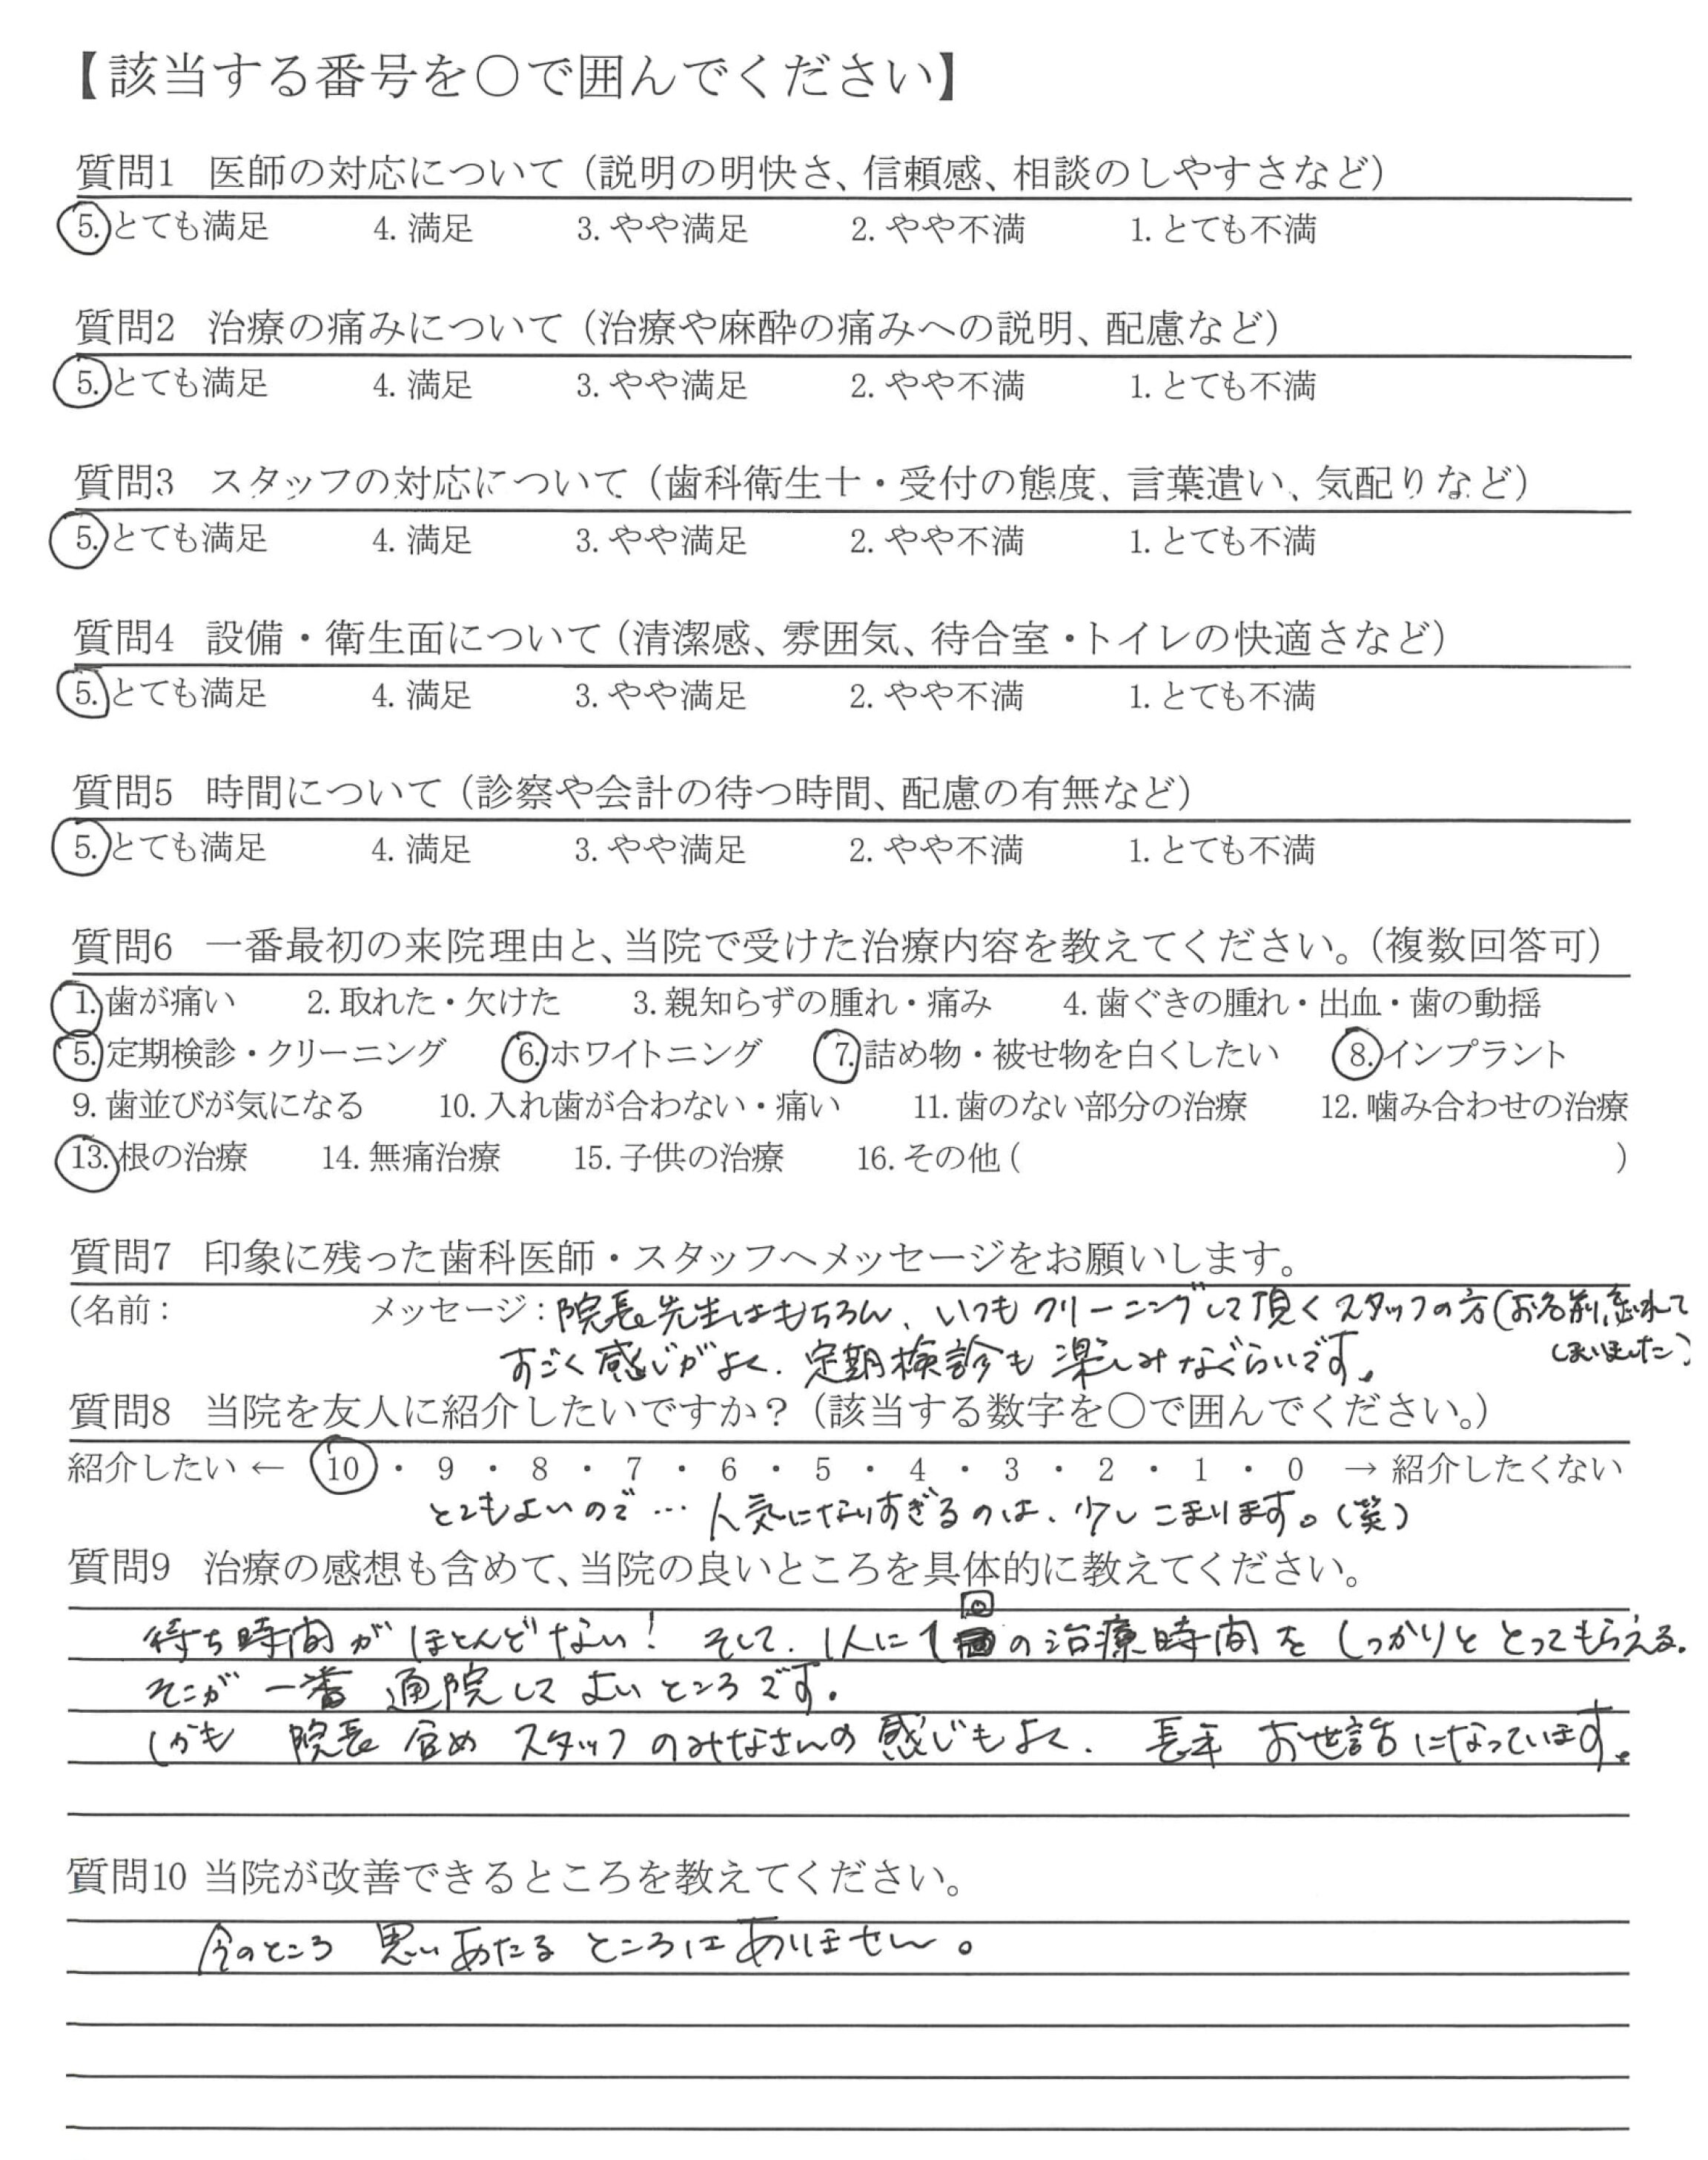 【該当する番号を○で囲んでください】
質問1 医師の対応について（説明の明快さ、信頼感、相談のしやすさなど）
5. とても満足 4. 満足 3. やや満足 2. やや不満 1. とても不満
質問2 治療の痛みについて（治療や麻酔の痛みへの説明、配慮など）
5. とても満足 4. 満足 3. やや満足 2. やや不満 1. とても不満
質問3 スタッフの対応について（歯科衛生士・受付の態度、言葉遣い、気配りなど）
5. とても満足 4. 満足 3. やや満足 2. やや不満 1. とても不満
質問4 設備・衛生面について（清潔感、雰囲気、待合室・トイレの快適さなど）
5. とても満足 4. 満足 3. やや満足 2. やや不満 1. とても不満
質問5 時間について（診察や会計の待つ時間、配慮の有無など）
5. とても満足 4. 満足 3. やや満足 2. やや不満 1. とても不満
質問6 一番最初の来院理由と、当院で受けた治療内容を教えてください。（複数回答可）
1. 歯が痛い 2. 取れた・欠けた 3. 親知らずの腫れ・痛み 4. 歯ぐきの腫れ・出血・歯の動揺
5. 定期検診・クリーニング 6. ホワイトニング 7. 詰め物・被せ物を白くしたい 8. インプラント
9. 歯並びが気になる 10. 入れ歯が合わない・痛い 11. 歯のない部分の治療 12. 噛み合わせの治療
13. 根の治療 14. 無痛治療 15. 子供の治療 16. その他 ( )
質問7 印象に残った歯科医師・スタッフへメッセージをお願いします。
（名前： メッセージ：院長先生はもちろん、いつもクリーニングして頂くスタッフの方（お名前忘れて
しまいました）
すごく感じがよく、定期検診も楽しみなぐらいです。
質問8 当院を友人に紹介したいですか？（該当する数字を○で囲んでください。）
紹介したい ← 10 ・ 9 ・ 8 ・ 7 ・ 6 ・ 5 ・ 4 ・ 3 ・ 2 ・ 1 ・ 0 → 紹介したくない
とてもよいので…人気になりすぎるのは、少しこまります。（笑）
質問9 治療の感想も含めて、当院の良いところを具体的に教えてください。
待ち時間がほとんどない！そして、1人に1回の治療時間をしっかりととってもらえる。
そこが一番通院してよいところです。
しかも院長含めスタッフのみなさんの感じもよく、長年お世話になっています。
質問10 当院が改善できるところを教えてください。
今のところ思いあたるところはありません。